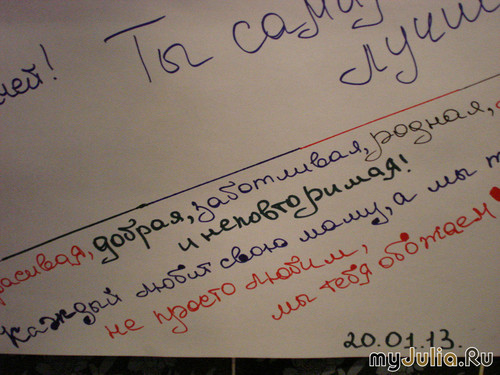 Ты сам
лучш
добрая, заботливая, родная,
и неповторимая!
Каждый любит свою маму, а мы т
не просто любим,
мы тебя обожаем
20.01.13.
myJulia.Ru